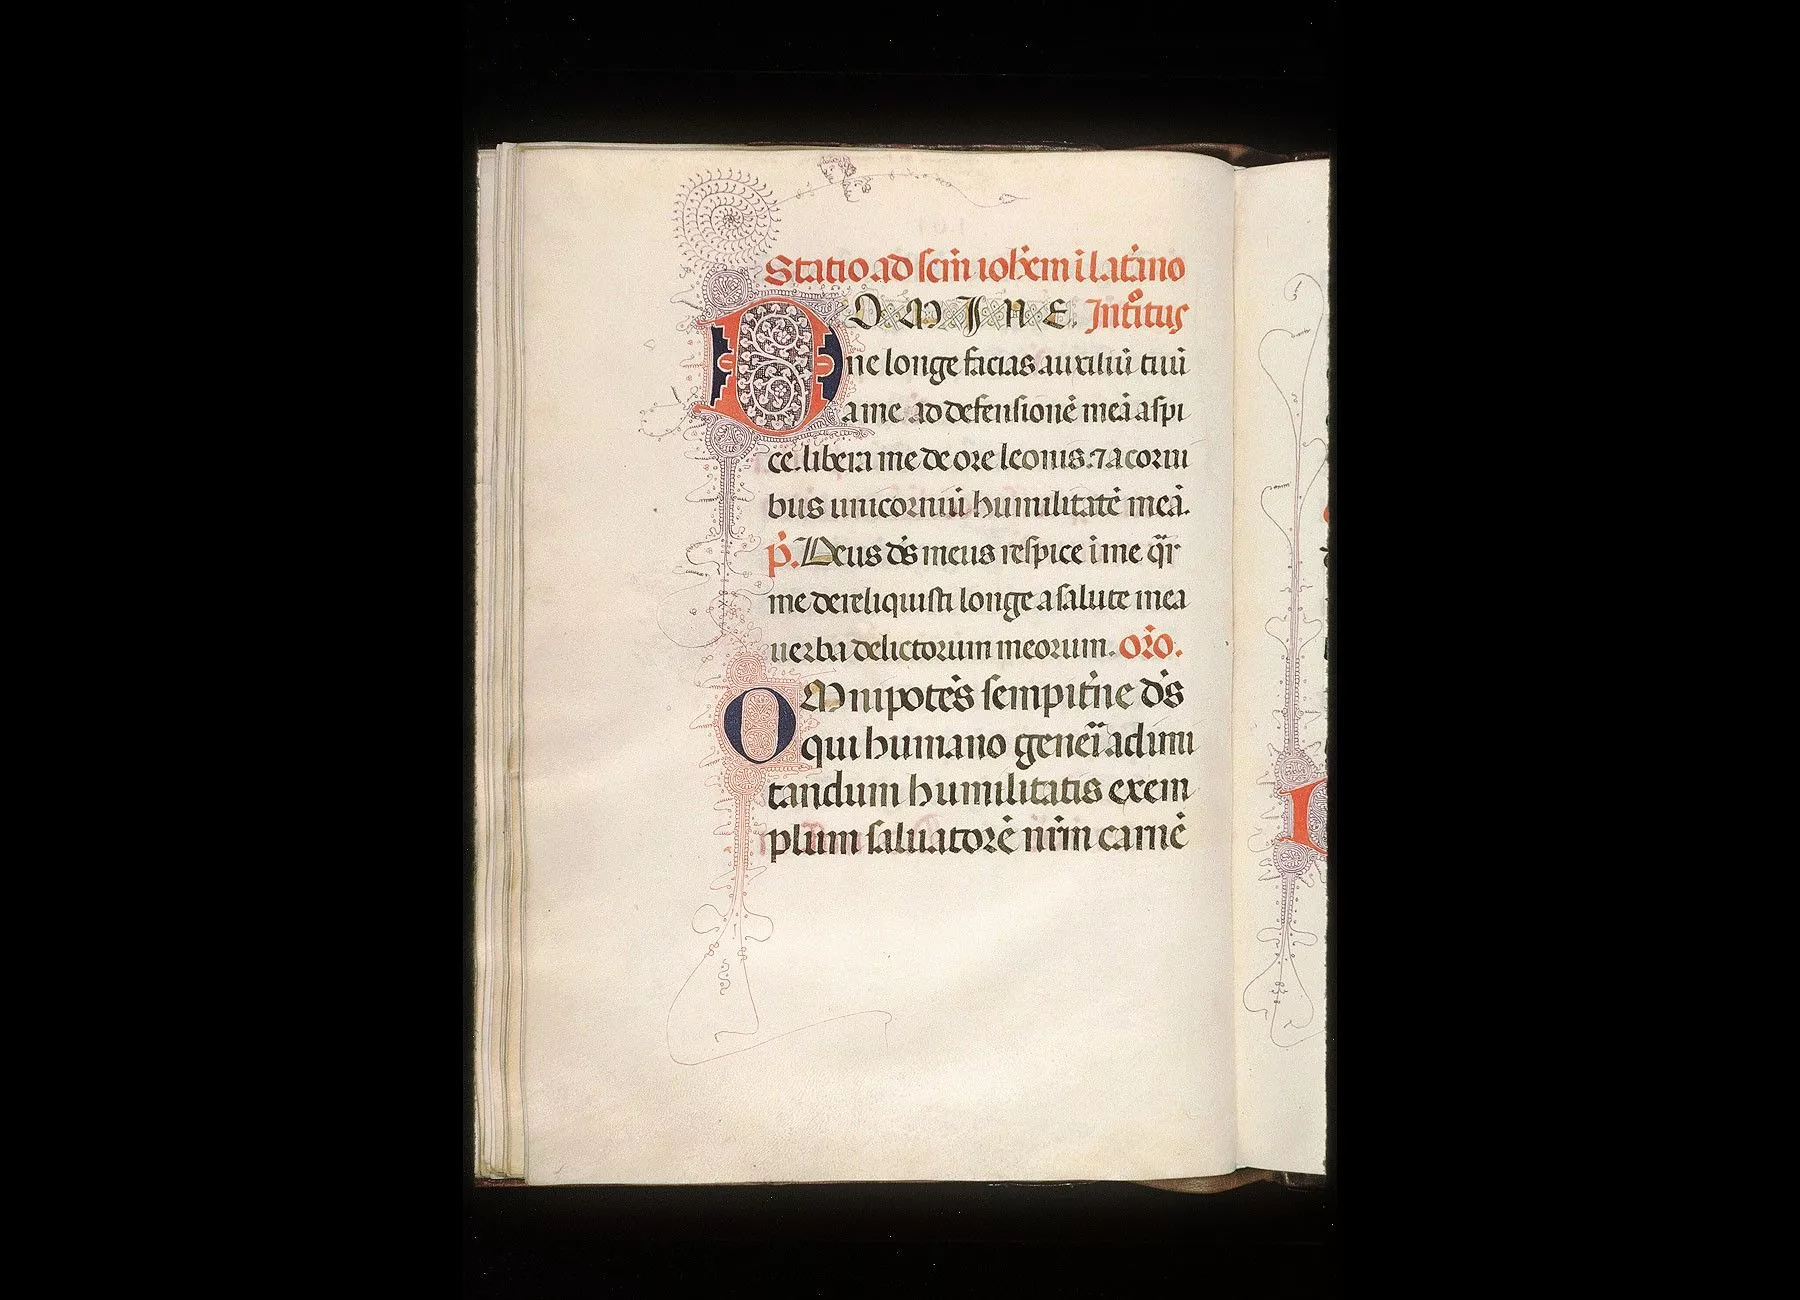 Statio ad scm̄ ioh̄em ī latāno
DOMINE. Intͦitus
ne longe facias auxiliū tuū
a me ad defensionē meā aspi
ce. libera me de ore leonis. ⁊ a cornu
bus unicorniū humilitatē meā.
p̄. Deus ds̄ meus respice ī me qr̄
me dereliquisti longe a salute mea
uerba delictorum meorum. Oro̅.
OMnipotēs sempitn̄e ds̄
qui humano geneī ad imi
tandum humilitatis exem
plum saluatorē nr̄m carnē